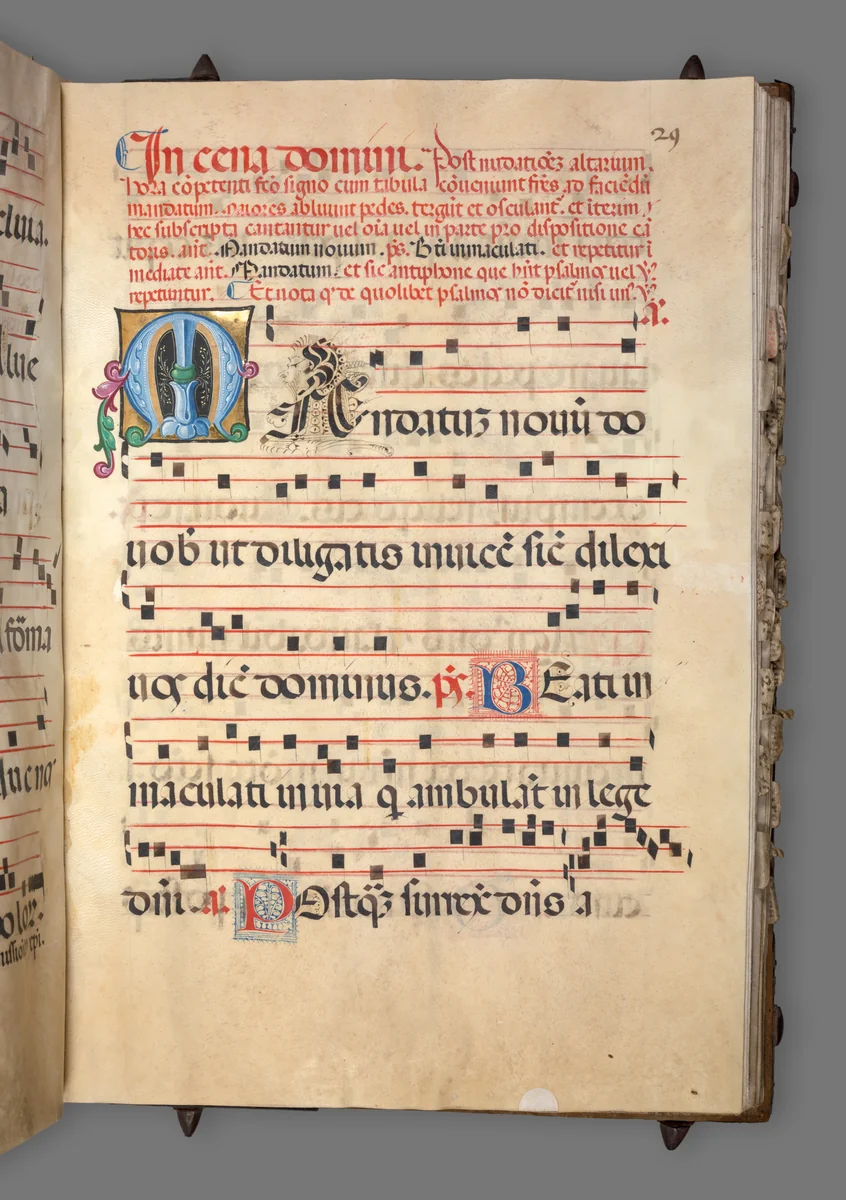 29
In cena domini. Post nudatioēz altarium.
hora cōpetenti fco signo cum tabula cōueniunt frēs ad faciēdū
mandatum. Maiores abluunt pedes. tergūt et osculant. et iterim
hec subscripta cantantur uel oīa uel in parte pro dispositione cā
toris. añt. Mandatum nouum. ps. Bti inmaculati. et repetitur ī
mediate añt. Mandatum. et sic antiphone que hñt psalmos uel V.
repetuntur. Et nota q de quolibet psalmo nō dicit nisi un. V.
A.
MAndatuz nouū do
uob ut diligatis inuicē sic̄ dilexi
uos dic̄ dominus. ps. BEati in
maculati in uia q ambulāt in lege
dñi. a. POstq̄z surrex dñs a
clina.
lue
fōma
lucna
olor.
ussioīs xpi.